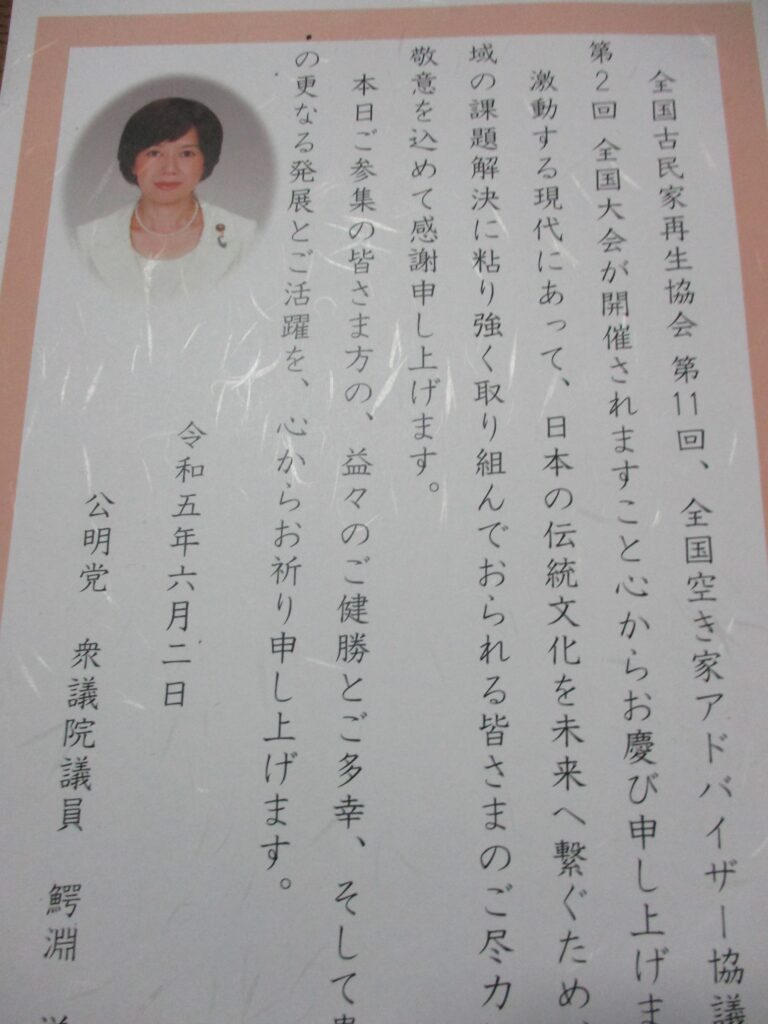 全国古民家再生協会 第11回、全国空き家アドバイザー協議
第2回 全国大会が開催されますこと心からお慶び申し上げま
激動する現代にあって、日本の伝統文化を未来へ繋ぐため、
域の課題解決に粘り強く取り組んでおられる皆さまのご尽力
敬意を込めて感謝申し上げます。
本日ご参集の皆さま方の、益々のご健勝とご多幸、そして
の更なる発展とご活躍を、心からお祈り申し上げます。
令和五年六月二日
公明党 衆議院議員 鰐淵